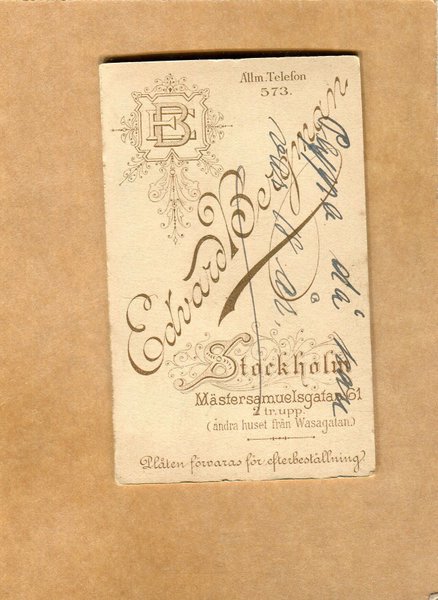 Allm. Telefon
573.
EB
Edvard
Stockholm
Mästersamuelsgatan 61
2 tr. upp.
(andra huset från Wasagatan.)
Plåten förvaras för efterbeställning.
då han
var 18 år,